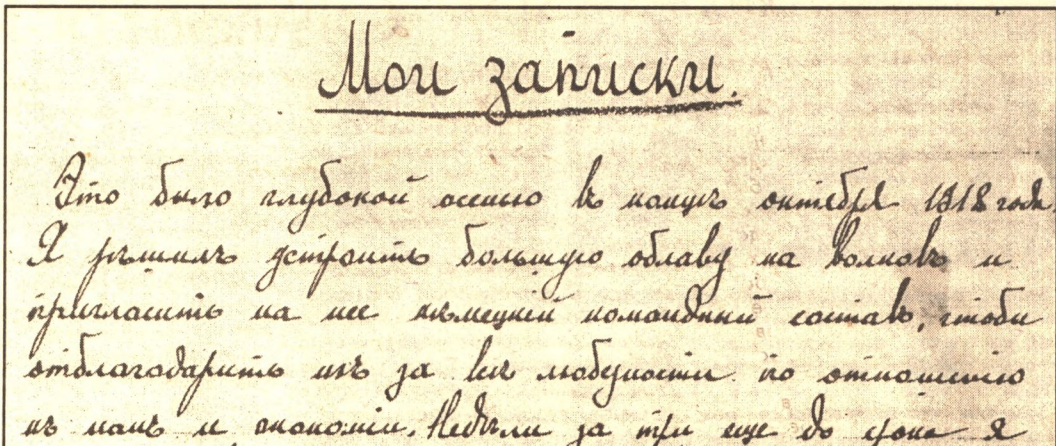 Мои записки.
Это было глубокой осенью въ концѣ октября 1918 года
Я рѣшилъ устроить большую облаву на волковъ и
пригласить на нее нѣмецкій командный составъ, чтобы
отблагодарить ихъ за всѣ любезности по отношенію
къ намъ и экономіи. Недѣли за три еще до срока я